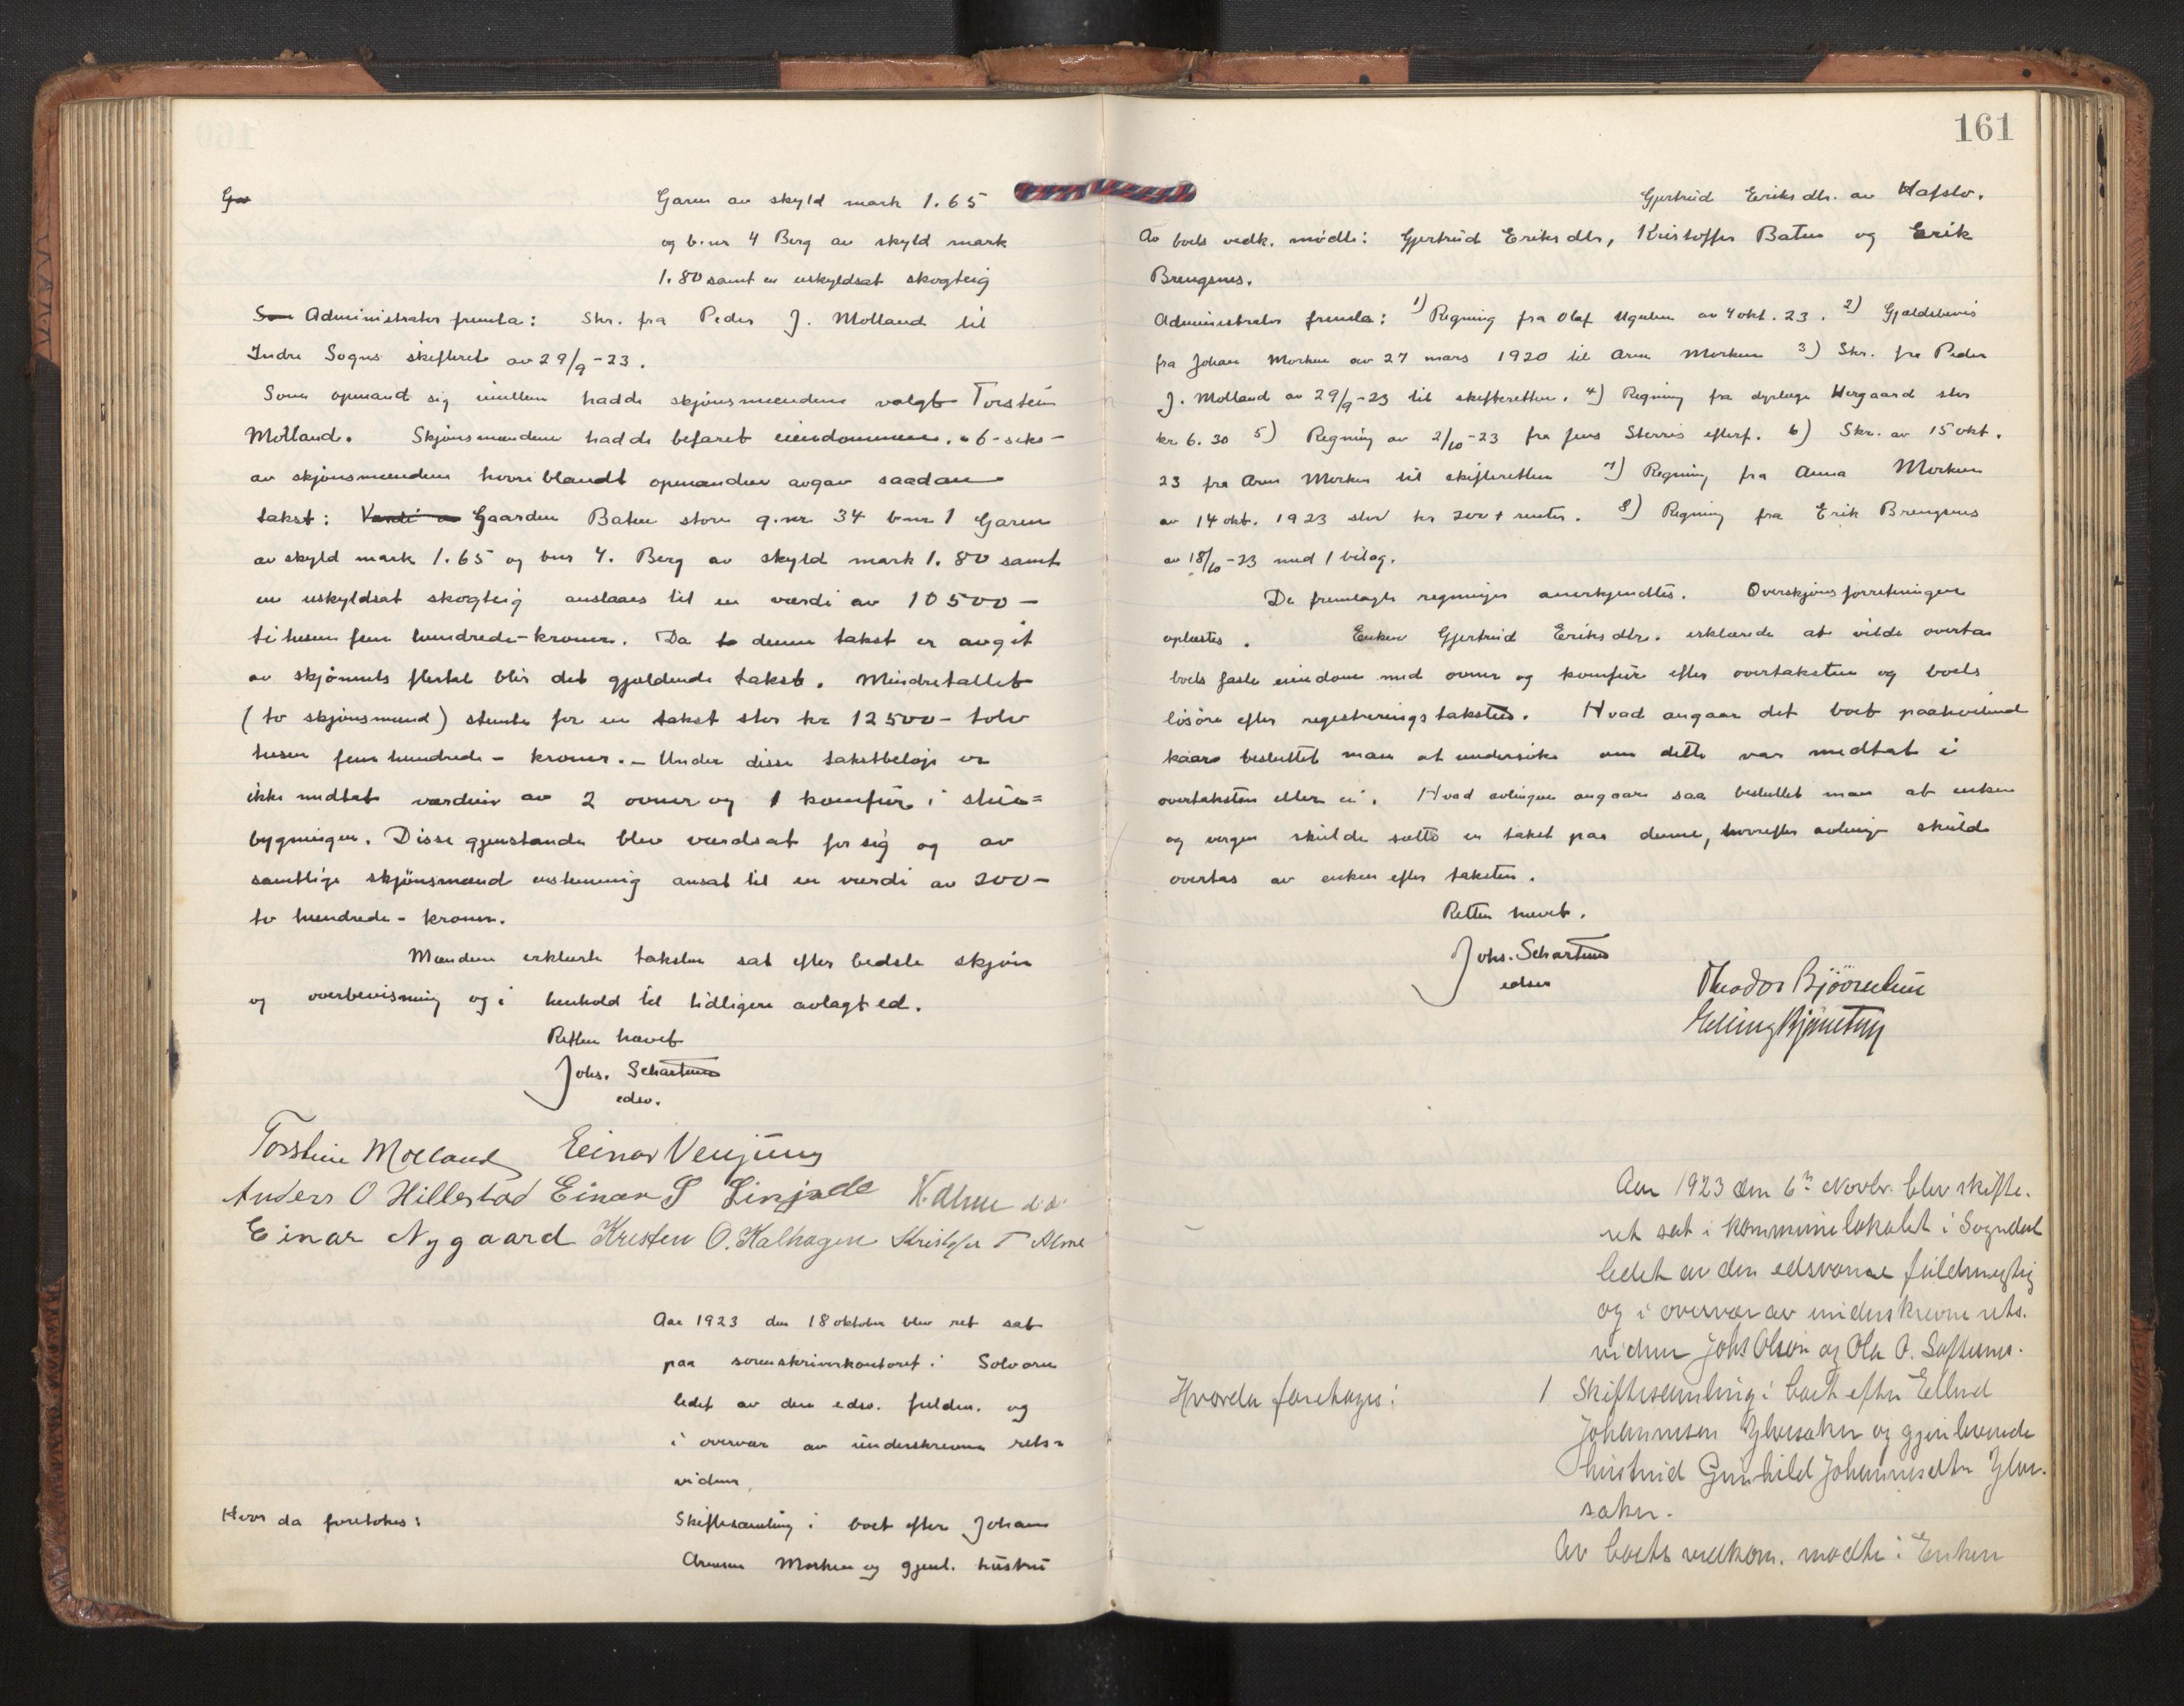 Garen av skyld mark 1.65
og b.nr 4 Berg av skyld mark
1.80 samt en uskyldsat skogteig
Administrator fremla: Skr. fra Peder J. Molland til
Indre Sogns skifteret av 29/9-23.
Som opmand sig imellem hadde skjønsmændene valgt Torstein
Molland. Skjønsmændene hadde befaret eiendommen. 6-seks-
av skjønsmændene hvoriblandt opmanden avgav saadan
takst: Gaarden Baten store g.nr 34 b.nr 1 Garen
av skyld mark 1.65 og bnr 4. Berg av skyld mark 1.80 samt
en uskyldsat skogteig anslaaes til en værdi av 10500-
titusen fem hundrede-kroner. Da denne takst er avgit
av skjønnets flertal blir det gjældende takst. Mindretallet
(to skjønsmænd) stemte for en takst stor kr 12500- tolv
tusen fem hundrede- kroner.- Under disse takstbeløp er
ikke medtat værdien av 2 ovner og 1 komfur i stue=
bygningen. Disse gjenstande blev værdsat for sig og av
samtlige skjønsmænd enstemmig ansat til en værdi av 200-
to hundrede- kroner.
Mændene erklærte taksten sat efter bedste skjøn
og overbevisning og i henhold til tidligere avlagt ed.
Retten hævet
Johs. Schartum
edsv.
Torstein Molland Einar Venjum
Anders O Hillestad Einar S Linjade K. Alme
Einar Nygaard Kristen O. Kalhagen Kristofer T Alme
Aar 1923 den 18 oktober blev ret sat
paa sorenskriverkontoret i Solvorn
ledet av den edsv. fuldm. og
i overvær av underskrevne rets=
vidner.
Hvor da foretokes:
Skiftesamling i boet efter Johan
Arnesen Morken og gjenl. hustru
161
Gjertrud Eriksdtr. av Hafslo.
Av boets vedk. mødte: Gjertrud Eriksdtr, Kristoffer Baten og Erik
Brengsnes.
Administrator fremla: 1) Regning fra Olaf Ugulen av 4 okt. 23. 2) Gjældsbevis
fra Johan Morken av 27 mars 1920 til Arne Morken 3) Skr. fra Peder
J. Molland av 29/9-23 til skifteretten. 4) Regning fra dyrlæge Hergaard stor
kr 6.30 5) Regning av 2/10-23 fra Jens Sterris efterf. 6) Skr. av 15 okt.
23 fra Arne Morken til skifteretten 7) Regning fra Anna Morken
av 14 okt. 1923 stor kr 200 + renter. 8) Regning fra Erik Brengsnes
av 18/10-23 med 1 bilag.
De fremlagte regninger anerkjendtes. Overskjønsforretningen
oplæstes. Enken Gjertrud Eriksdtr. erklærede at vilde overta
boets faste eiendom med ovner og komfur efter overtaksten og boets
løsøre efter registreringstaksten. Hvad angaar det boet paahvilende
kaar besluttet man at undersøke om dette var medtat i
overtaksten eller ei. Hvad avlingen angaar saa besluttet man at enken
og vergen skulde sætte en takst paa denne, hvorefter avlingen skulde
overtas av enken efter taksten.
Retten hævet.
Johs. Schartum
edsv
Theodor Bjørnetun
Elling Bjørnetun
Aar 1923 den 6te Novbr. blev skifte-
ret sat i kommunelokalet i Sogndal
ledet av den edsvorne fuldmegtig
og i overvær av underskrevne rets-
vidner Johs Olsen og Ola O. Loftesnes.
Hvorda foretages:
1 Skiftesamling i boet efter Ellend
Johannesen Ylvisaker og gjenlevende
hustrud Gunhild Johannesdtr Ylvi-
saker.
Av boets vedkom. mødte: Enken